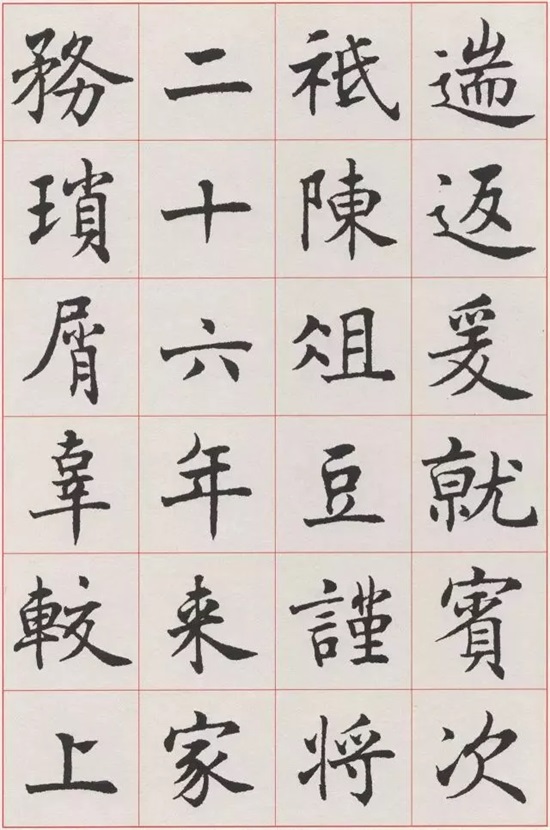 遄返爰就賓次
祇陳俎豆謹將
二十六年来家
務瑣屑辜較上